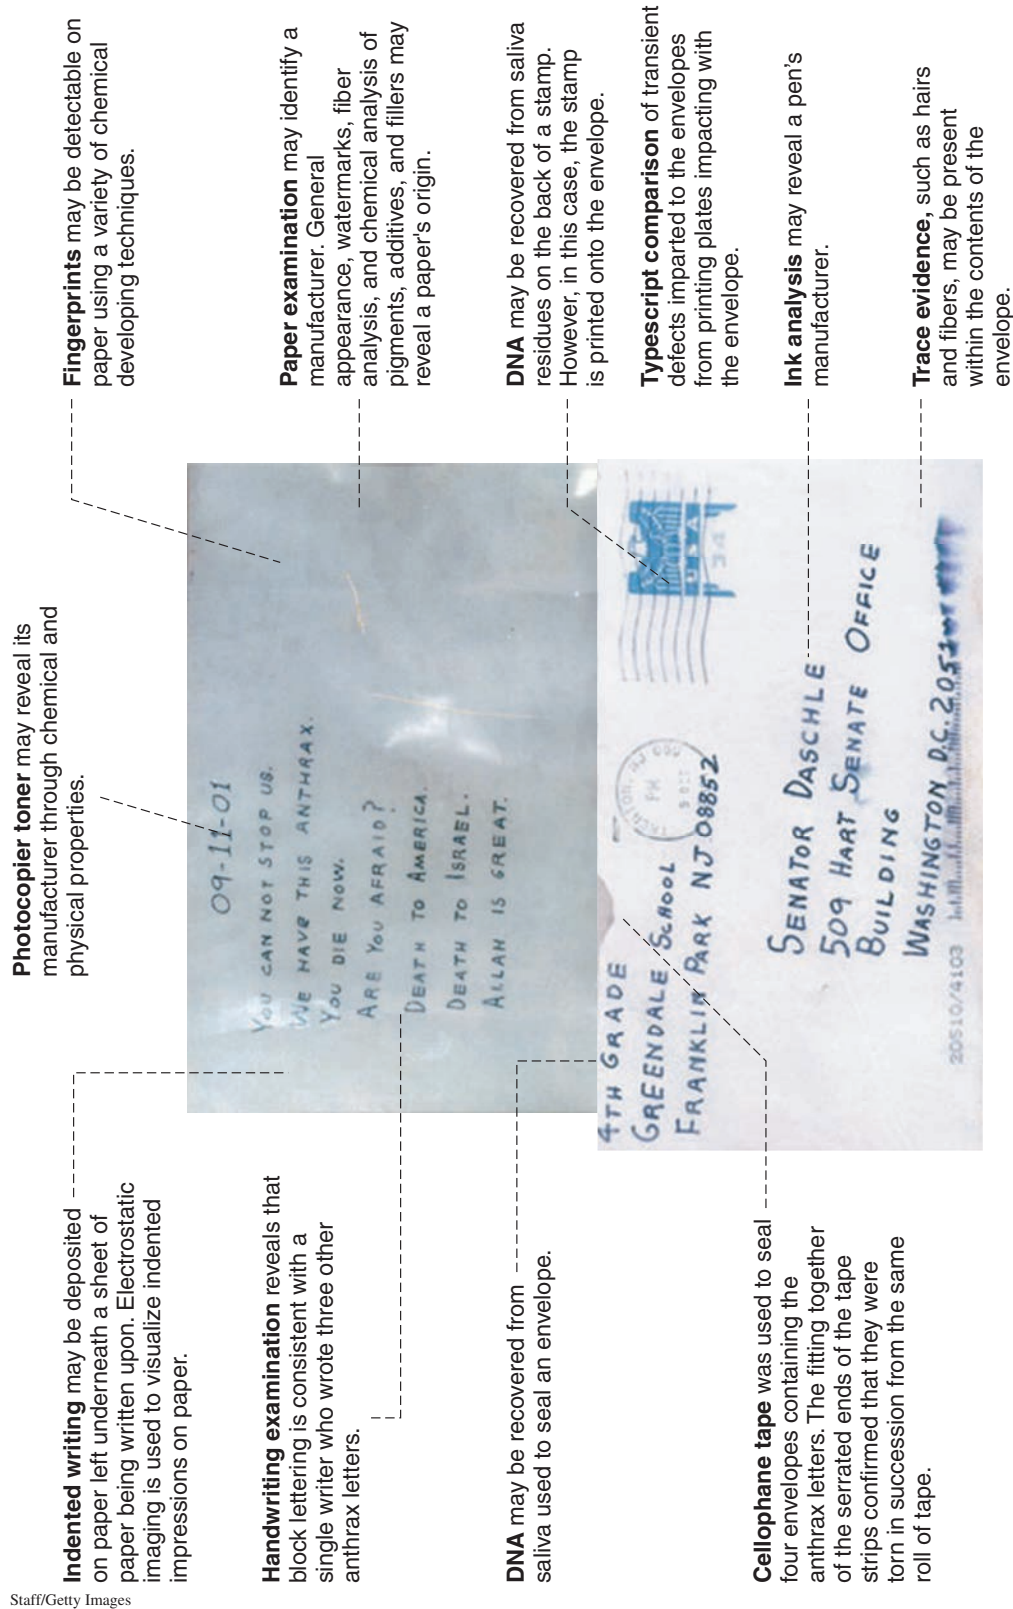 Photocopier toner may reveal its
manufacturer through chemical and
physical properties.
Indented writing may be deposited
on paper left underneath a sheet of
paper being written upon. Electrostatic
imaging is used to visualize indented
impressions on paper.
Handwriting examination reveals that
block lettering is consistent with a
single writer who wrote three other
anthrax letters.
DNA may be recovered from
saliva used to seal an envelope.
Cellophane tape was used to seal
four envelopes containing the
anthrax letters. The fitting together
of the serrated ends of the tape
strips confirmed that they were
torn in succession from the same
roll of tape.
09-11-01
YOU CAN NOT STOP US.
WE HAVE THIS ANTHRAX.
YOU DIE NOW.
ARE YOU AFRAID?
DEATH TO AMERICA.
DEATH TO ISRAEL.
ALLAH IS GREAT.
4TH GRADE
GREENDALE SCHOOL
FRANKLIN PARK NJ 08852
TRENTON, NJ
PM
USA
34
SENATOR DASCHLE
509 HART SENATE OFFICE
BUILDING
WASHINGTON D.C. 2051
20510/4103
Fingerprints may be detectable on
paper using a variety of chemical
developing techniques.
Paper examination may identify a
manufacturer. General
appearance, watermarks, fiber
analysis, and chemical analysis of
pigments, additives, and fillers may
reveal a paper's origin.
DNA may be recovered from saliva
residues on the back of a stamp.
However, in this case, the stamp
is printed onto the envelope.
Typescript comparison of transient
defects imparted to the envelopes
from printing plates impacting with
the envelope.
Ink analysis may reveal a pen's
manufacturer.
Trace evidence, such as hairs
and fibers, may be present
within the contents of the
envelope.
Staff/Getty Images